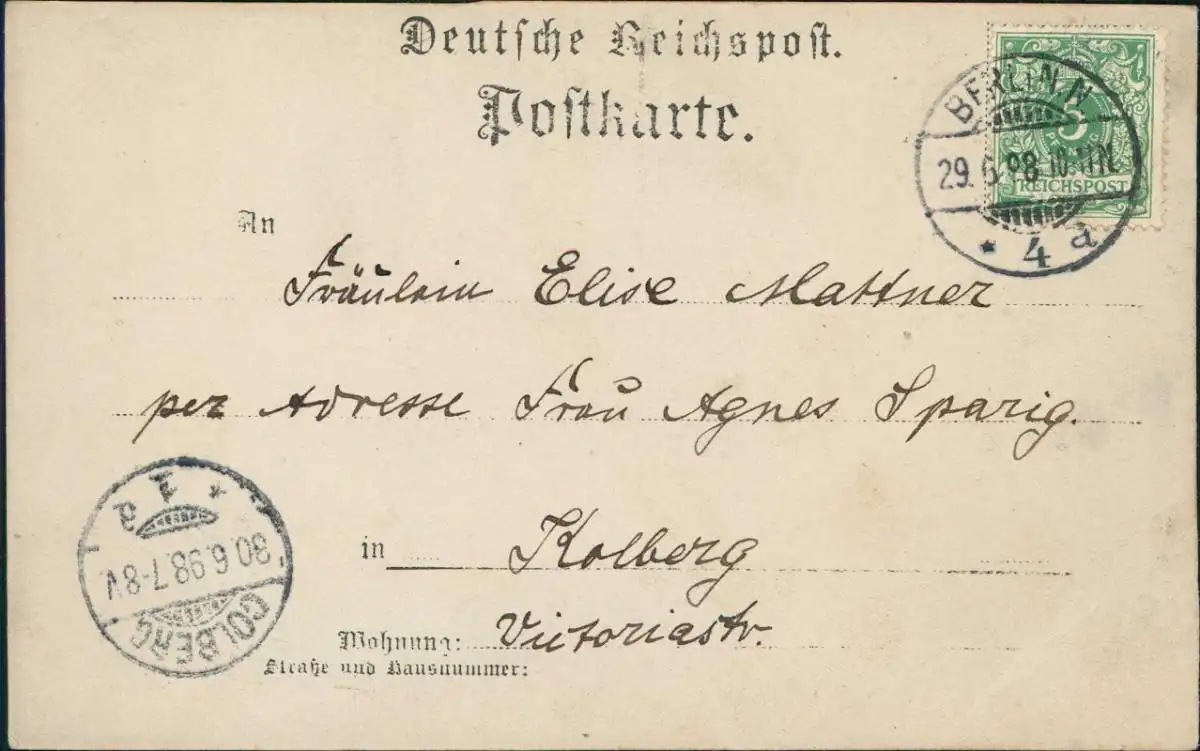 Deutsche Reichspost.
Postkarte.
BERLIN.N.
5
PFENNIG
29.6.98.10-11N.
REICHSPOST
* 4 a
An
Fräulein Elise Mattner
per Adresse Frau Agnes Sparig.
in Kolberg
Wohnung: Victoriastr.
Straße und Hausnummer:
COLBERG
30.6.98.7-8V.
* 1 a